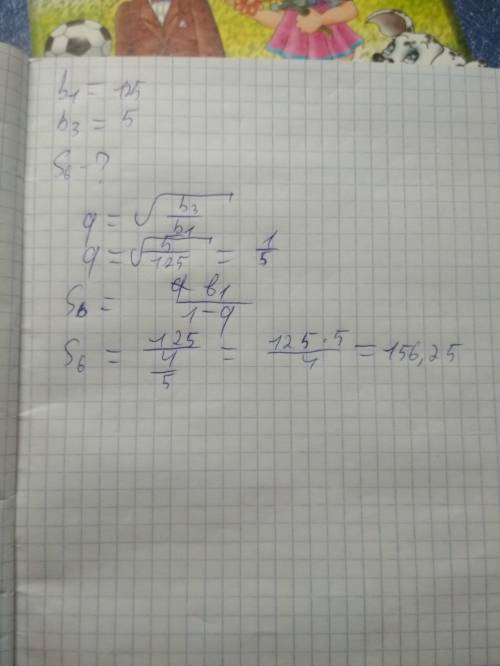 b₁ = 125
b₃ = 5
S₆ - ?
q = √(b₃/b₁)
q = √(5/125) = 1/5
S₆ = b₁/(1-q)
S₆ = 125/(4/5) = 125·5/4 = 156,25